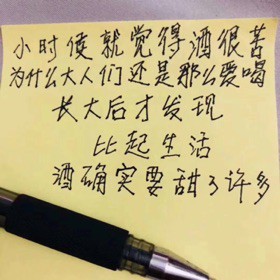 小时候就觉得酒很苦
为什么大人们还是那么爱喝
长大后才发现
比起生活
酒确实要甜了许多